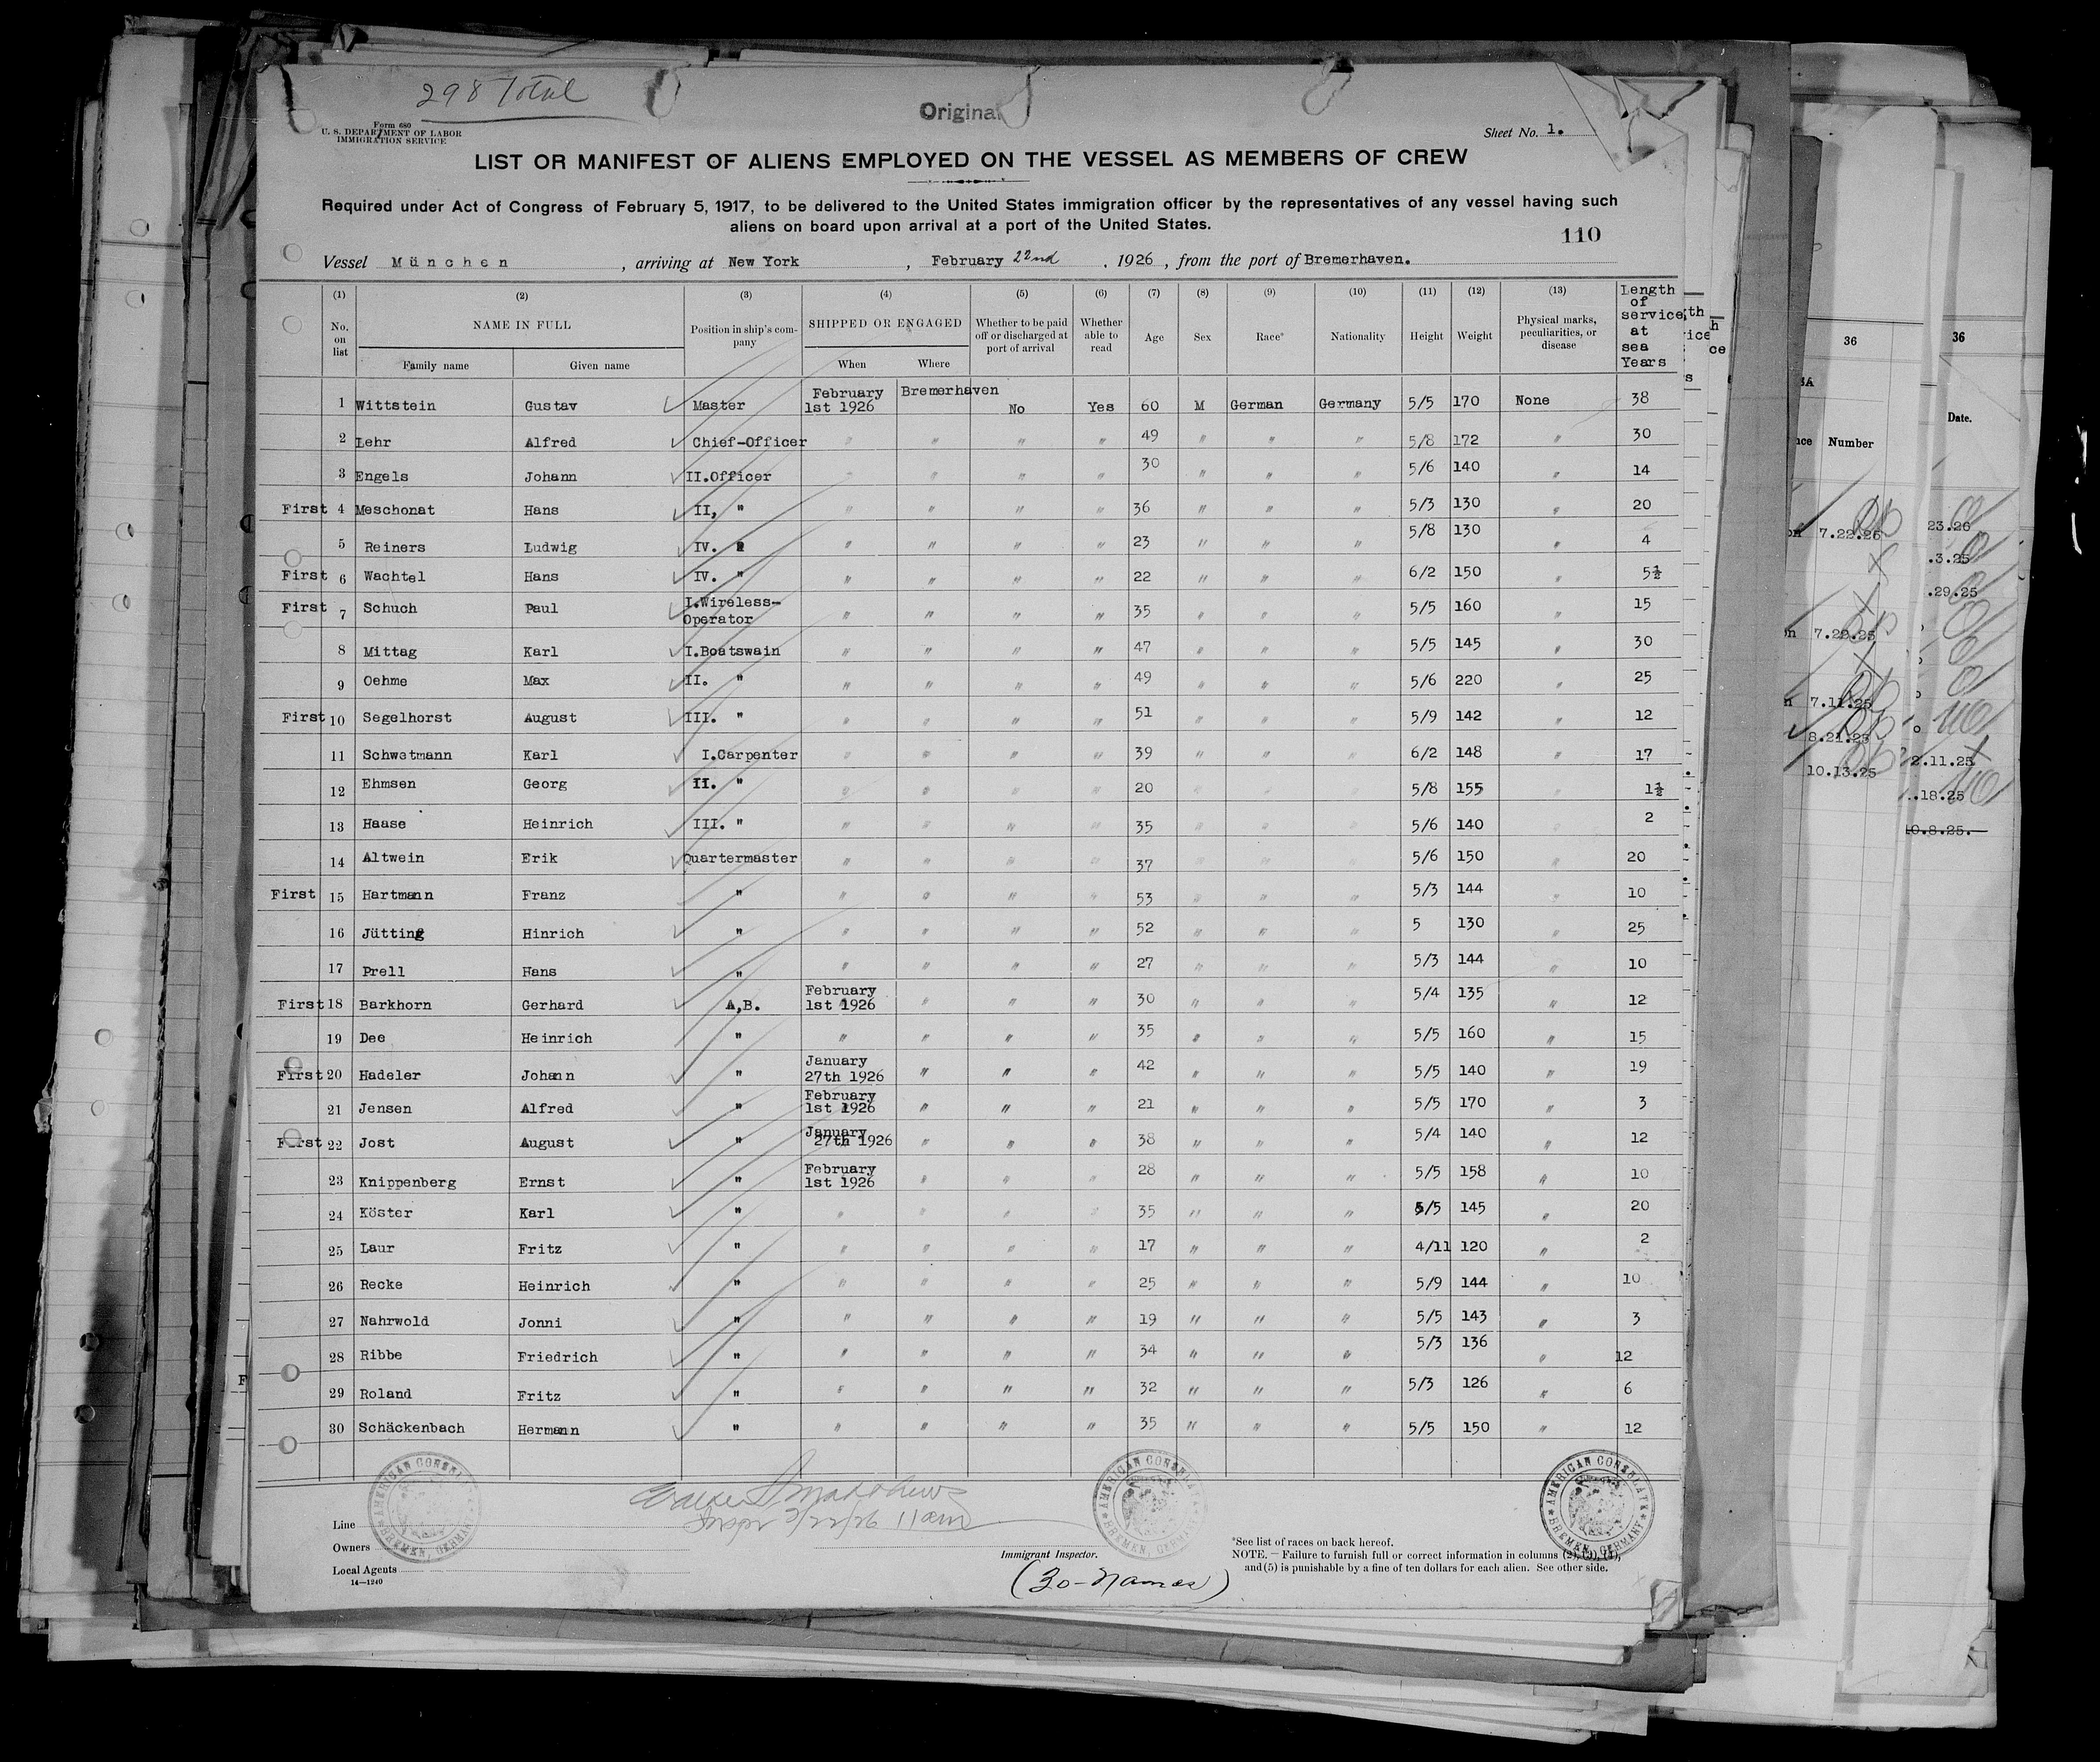 298 Total
Original
Form 680
U. S. DEPARTMENT OF LABOR
IMMIGRATION SERVICE
Sheet No. 1.
LIST OR MANIFEST OF ALIENS EMPLOYED ON THE VESSEL AS MEMBERS OF CREW
Required under Act of Congress of February 5, 1917, to be delivered to the United States immigration officer by the representatives of any vessel having such
aliens on board upon arrival at a port of the United States.
110
Vessel München , arriving at New York , February 22nd , 1926 , from the port of Bremerhaven.
(1) (2) (3) (4) (5) (6) (7) (8) (9) (10) (11) (12) (13) Length of service at sea Years
No. on list NAME IN FULL Position in ship's company SHIPPED OR ENGAGED Whether to be paid off or discharged at port of arrival Whether able to read Age Sex Race* Nationality Height Weight Physical marks, peculiarities, or disease
Family name Given name When Where
1 Wittstein Gustav Master February 1st 1926 Bremerhaven No Yes 60 M German Germany 5/5 170 None 38
2 Lehr Alfred Chief-Officer " " " " 49 " " " 5/8 172 " 30
3 Engels Johann II.Officer " " " " 30 " " " 5/6 140 " 14
First 4 Meschonat Hans II, " " " " " 36 " " " 5/3 130 " 20
5 Reiners Ludwig IV. " " " " " 23 " " " 5/8 130 " 4
First 6 Wachtel Hans IV. " " " " " 22 " " " 6/2 150 " 5½
First 7 Schuch Paul I.Wireless-Operator " " " " 35 " " " 5/5 160 " 15
8 Mittag Karl I.Boatswain " " " " 47 " " " 5/5 145 " 30
9 Oehme Max II. " " " " " 49 " " " 5/6 220 " 25
First 10 Segelhorst August III. " " " " " 51 " " " 5/9 142 " 12
11 Schwetmann Karl I.Carpenter " " " " 39 " " " 6/2 148 " 17
12 Ehmsen Georg II. " " " " " 20 " " " 5/8 155 " 1½
13 Haase Heinrich III. " " " " " 35 " " " 5/6 140 " 2
14 Altwein Erik Quartermaster " " " " 37 " " " 5/6 150 " 20
First 15 Hartmann Franz " " " " " 53 " " " 5/3 144 " 10
16 Jütting Hinrich " " " " " 52 " " " 5 130 " 25
17 Prell Hans " " " " " 27 " " " 5/3 144 " 10
First 18 Barkhorn Gerhard A,B. February 1st 1926 " " " 30 " " " 5/4 135 " 12
19 Dee Heinrich " " " " " 35 " " " 5/5 160 " 15
First 20 Hadeler Johann " January 27th 1926 " " " 42 " " " 5/5 140 " 19
21 Jensen Alfred " February 1st 1926 " " " 21 " " " 5/5 170 " 3
First 22 Jost August " January 27th 1926 " " " 38 " " " 5/4 140 " 12
23 Knippenberg Ernst " February 1st 1926 " " " 28 " " " 5/5 158 " 10
24 Köster Karl " " " " " 35 " " " 5/5 145 " 20
25 Laur Fritz " " " " " 17 " " " 4/11 120 " 2
26 Recke Heinrich " " " " " 25 " " " 5/9 144 " 10
27 Nahrwold Jonni " " " " " 19 " " " 5/5 143 " 3
28 Ribbe Friedrich " " " " " 34 " " " 5/3 136 " 12
29 Roland Fritz " " " " " 32 " " " 5/3 126 " 6
30 Schäckenbach Hermann " " " " " 35 " " " 5/5 150 " 12
AMERICAN CONSULATE BREMEN, GERMANY
AMERICAN CONSULATE BREMEN, GERMANY
AMERICAN CONSULATE BREMEN, GERMANY
2/22/26 11am
Line
Owners
Local Agents
14—1240
Immigrant Inspector.
(30-Names)
*See list of races on back hereof.
NOTE.—Failure to furnish full or correct information in columns (2), (3), (4),
and (5) is punishable by a fine of ten dollars for each alien. See other side.
36
Number
7.22.26
7.22.25
7.11.25
8.21.25
10.13.25
36
Date.
23.26
.3.25
.29.25
2.11.25
.18.25
0.8.25.